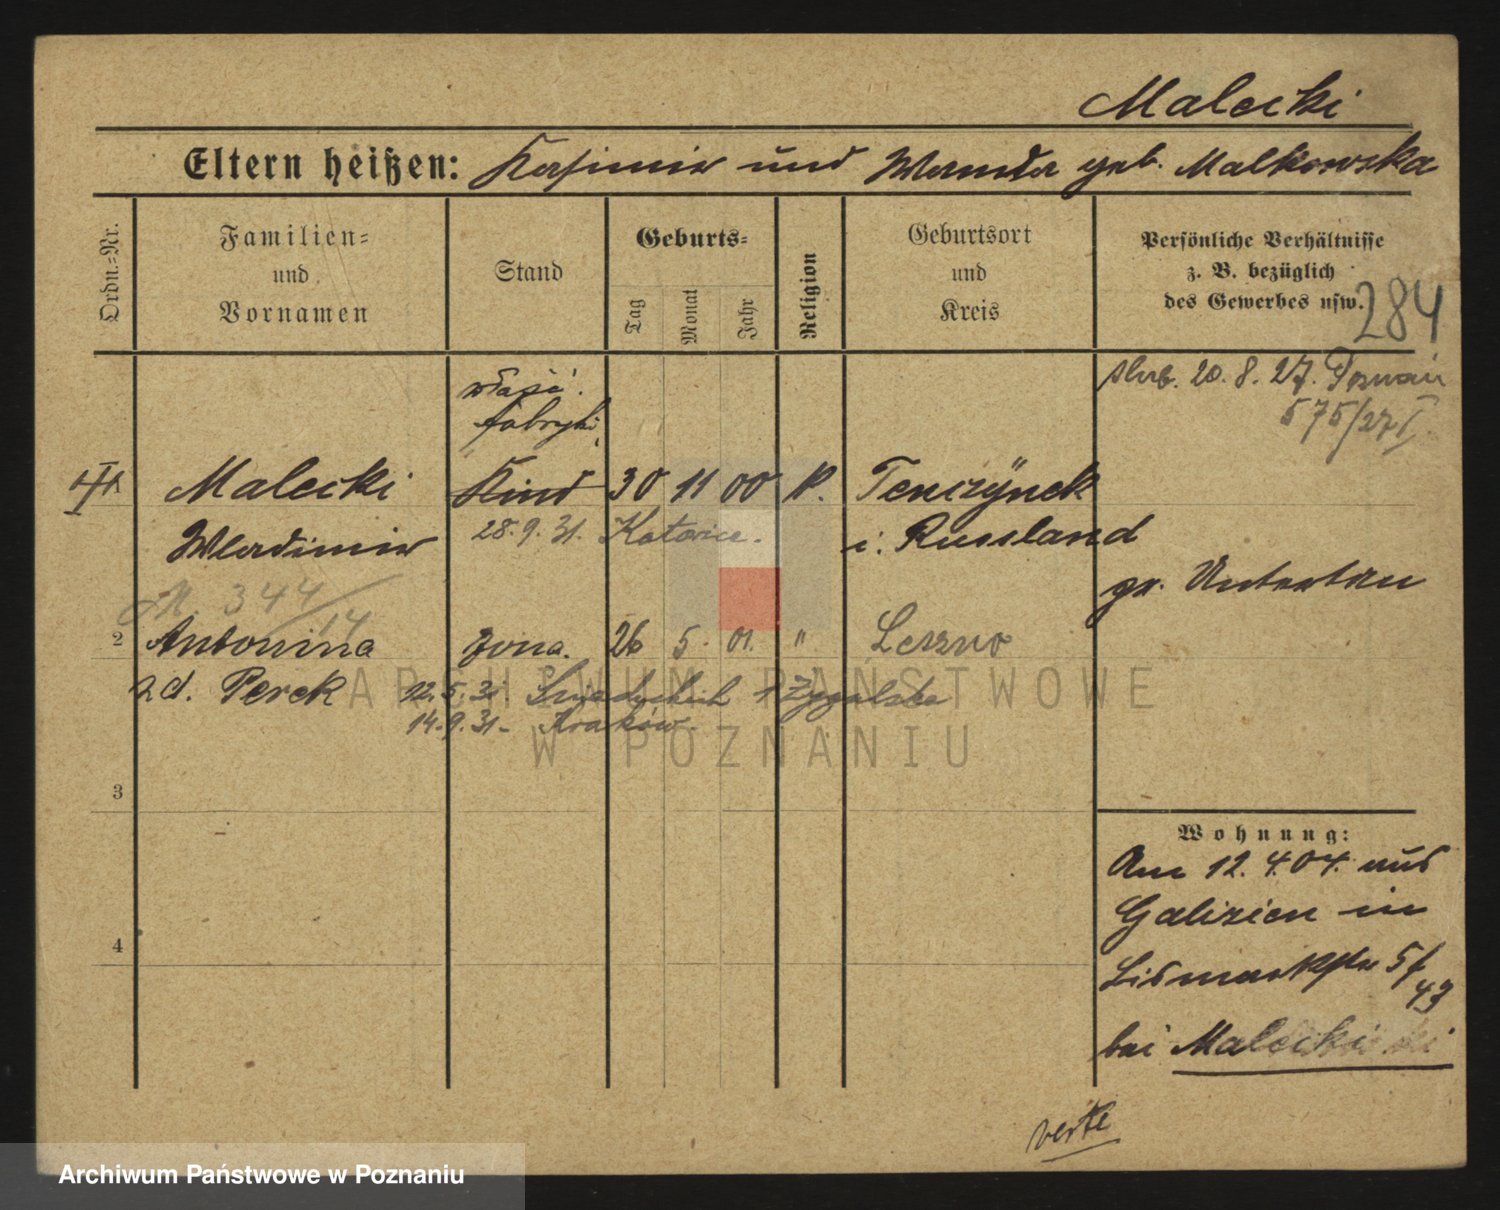 Malecki
Eltern heißen: Kasimir und Wanda geb. Malkowska
Ordn.=Nr.
Familien=
und
Vornamen
Stand
Geburts=
Tag
Monat
Jahr
Religion
Geburtsort
und
Kreis
Persönliche Verhältnisse
z. B. bezüglich
des Gewerbes usw.
284
właść.
fabryki
ślub. 20.8.27. Poznań
575/27 I
Malecki Kind 30 11 00 k. Tenczÿnek
Wladimir 28.9.31. Katowice. i. Russland
gr. Untertan
344/14
2 Antonina żona. 26 5. 01. " Leszno
z d. Perek 12.5.31 Śniadeckich
14.9.31- Kraków.
3
4
Wohnung:
Am 12.4.04. aus
Galizien in
Bismarckstr 5/
43
bei Malecki
verte
ARCHIWUM PAŃSTWOWE
W POZNANIU
Archiwum Państwowe w Poznaniu